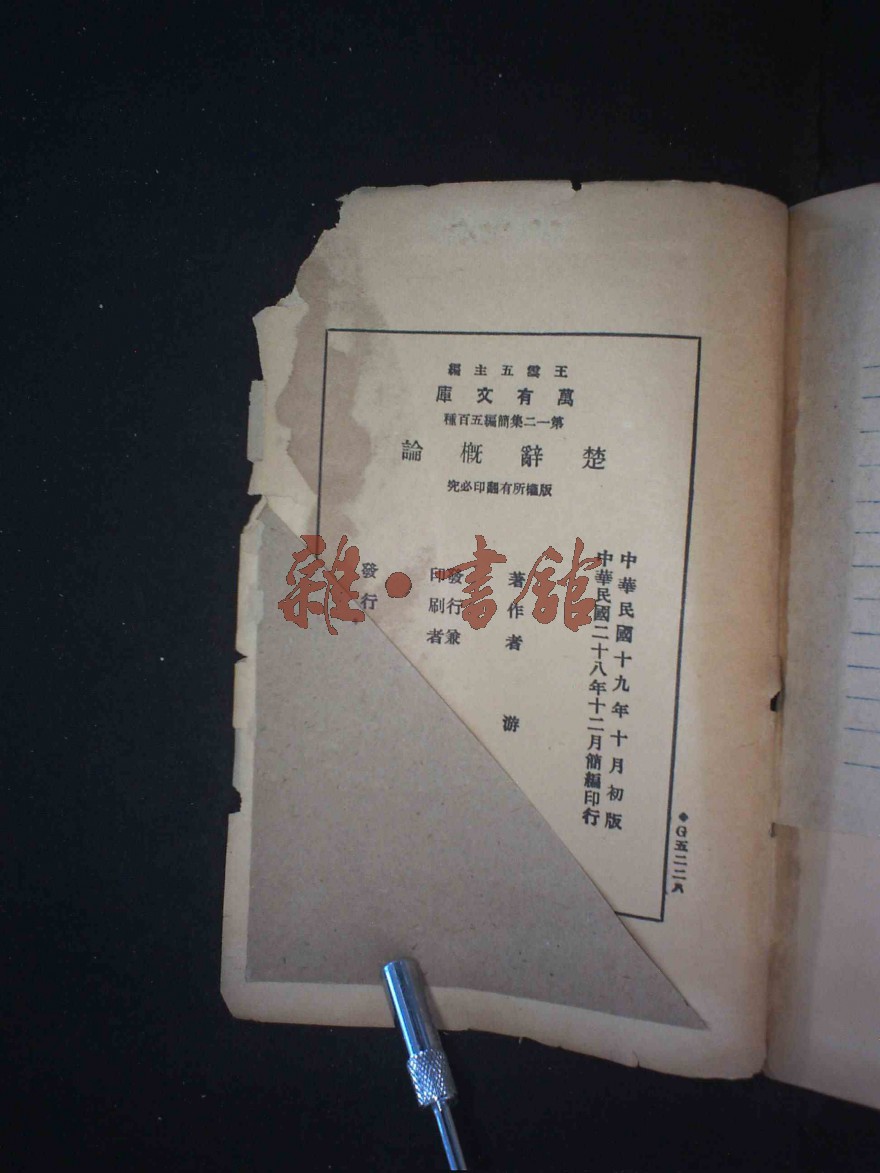 王雲五主編
萬有文庫
第一二集簡編五百種
楚辭概論
版權所有翻印必究
中華民國十九年十月初版
中華民國二十八年十二月簡編印行
著作者 游
發行兼
印刷者
發行
◆G五二二八
雜·書館